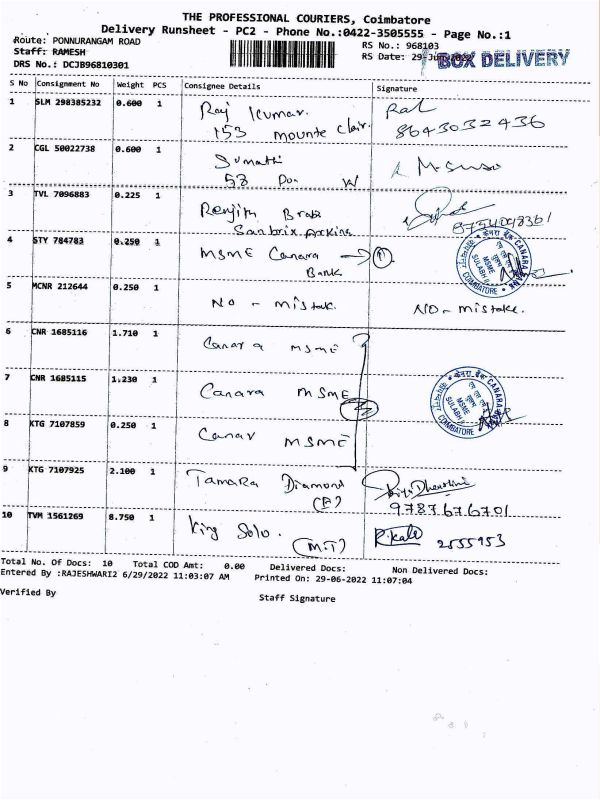 THE PROFESSIONAL COURIERS, Coimbatore
Delivery Runsheet - PC2 - Phone No.:0422-3505555 - Page No.:1
Route: PONNURANGAM ROAD
RS No.: 968103
Staff: RAMESH
RS Date: 29-Jun-2022
BOX DELIVERY
DRS No.: DCJB96810301
S No Consignment No Weight PCS Consignee Details Signature
1 SLM 298385232 0.600 1 Raj Kumar.
153 mounte Clair. 8643032436
2 CGL 50022738 0.600 1 Sumathi
58
3 TVL 7096883 0.225 1 Renjith
4 STY 784783 0.250 1 MSME Canara
Bank
CANARA BANK
MSME
SULABH
COIMBATORE
5 MCNR 212644 0.250 1 NO - mistake. NO - mistake.
6 CNR 1685116 1.710 1 Canara MSME
7 CNR 1685115 1.230 1 Canara MSME
CANARA BANK
MSME
SULABH
COIMBATORE
8 KTG 7107859 0.250 1 Canar MSME
9 KTG 7107925 2.100 1 Tamara Diamond
9787676701
10 TVM 1561269 8.750 1 King Solo.
(M.T) 2555953
Total No. Of Docs: 10 Total COD Amt: 0.00 Delivered Docs: Non Delivered Docs:
Entered By :RAJESHWARI2 6/29/2022 11:03:07 AM Printed On: 29-06-2022 11:07:04
Verified By
Staff Signature